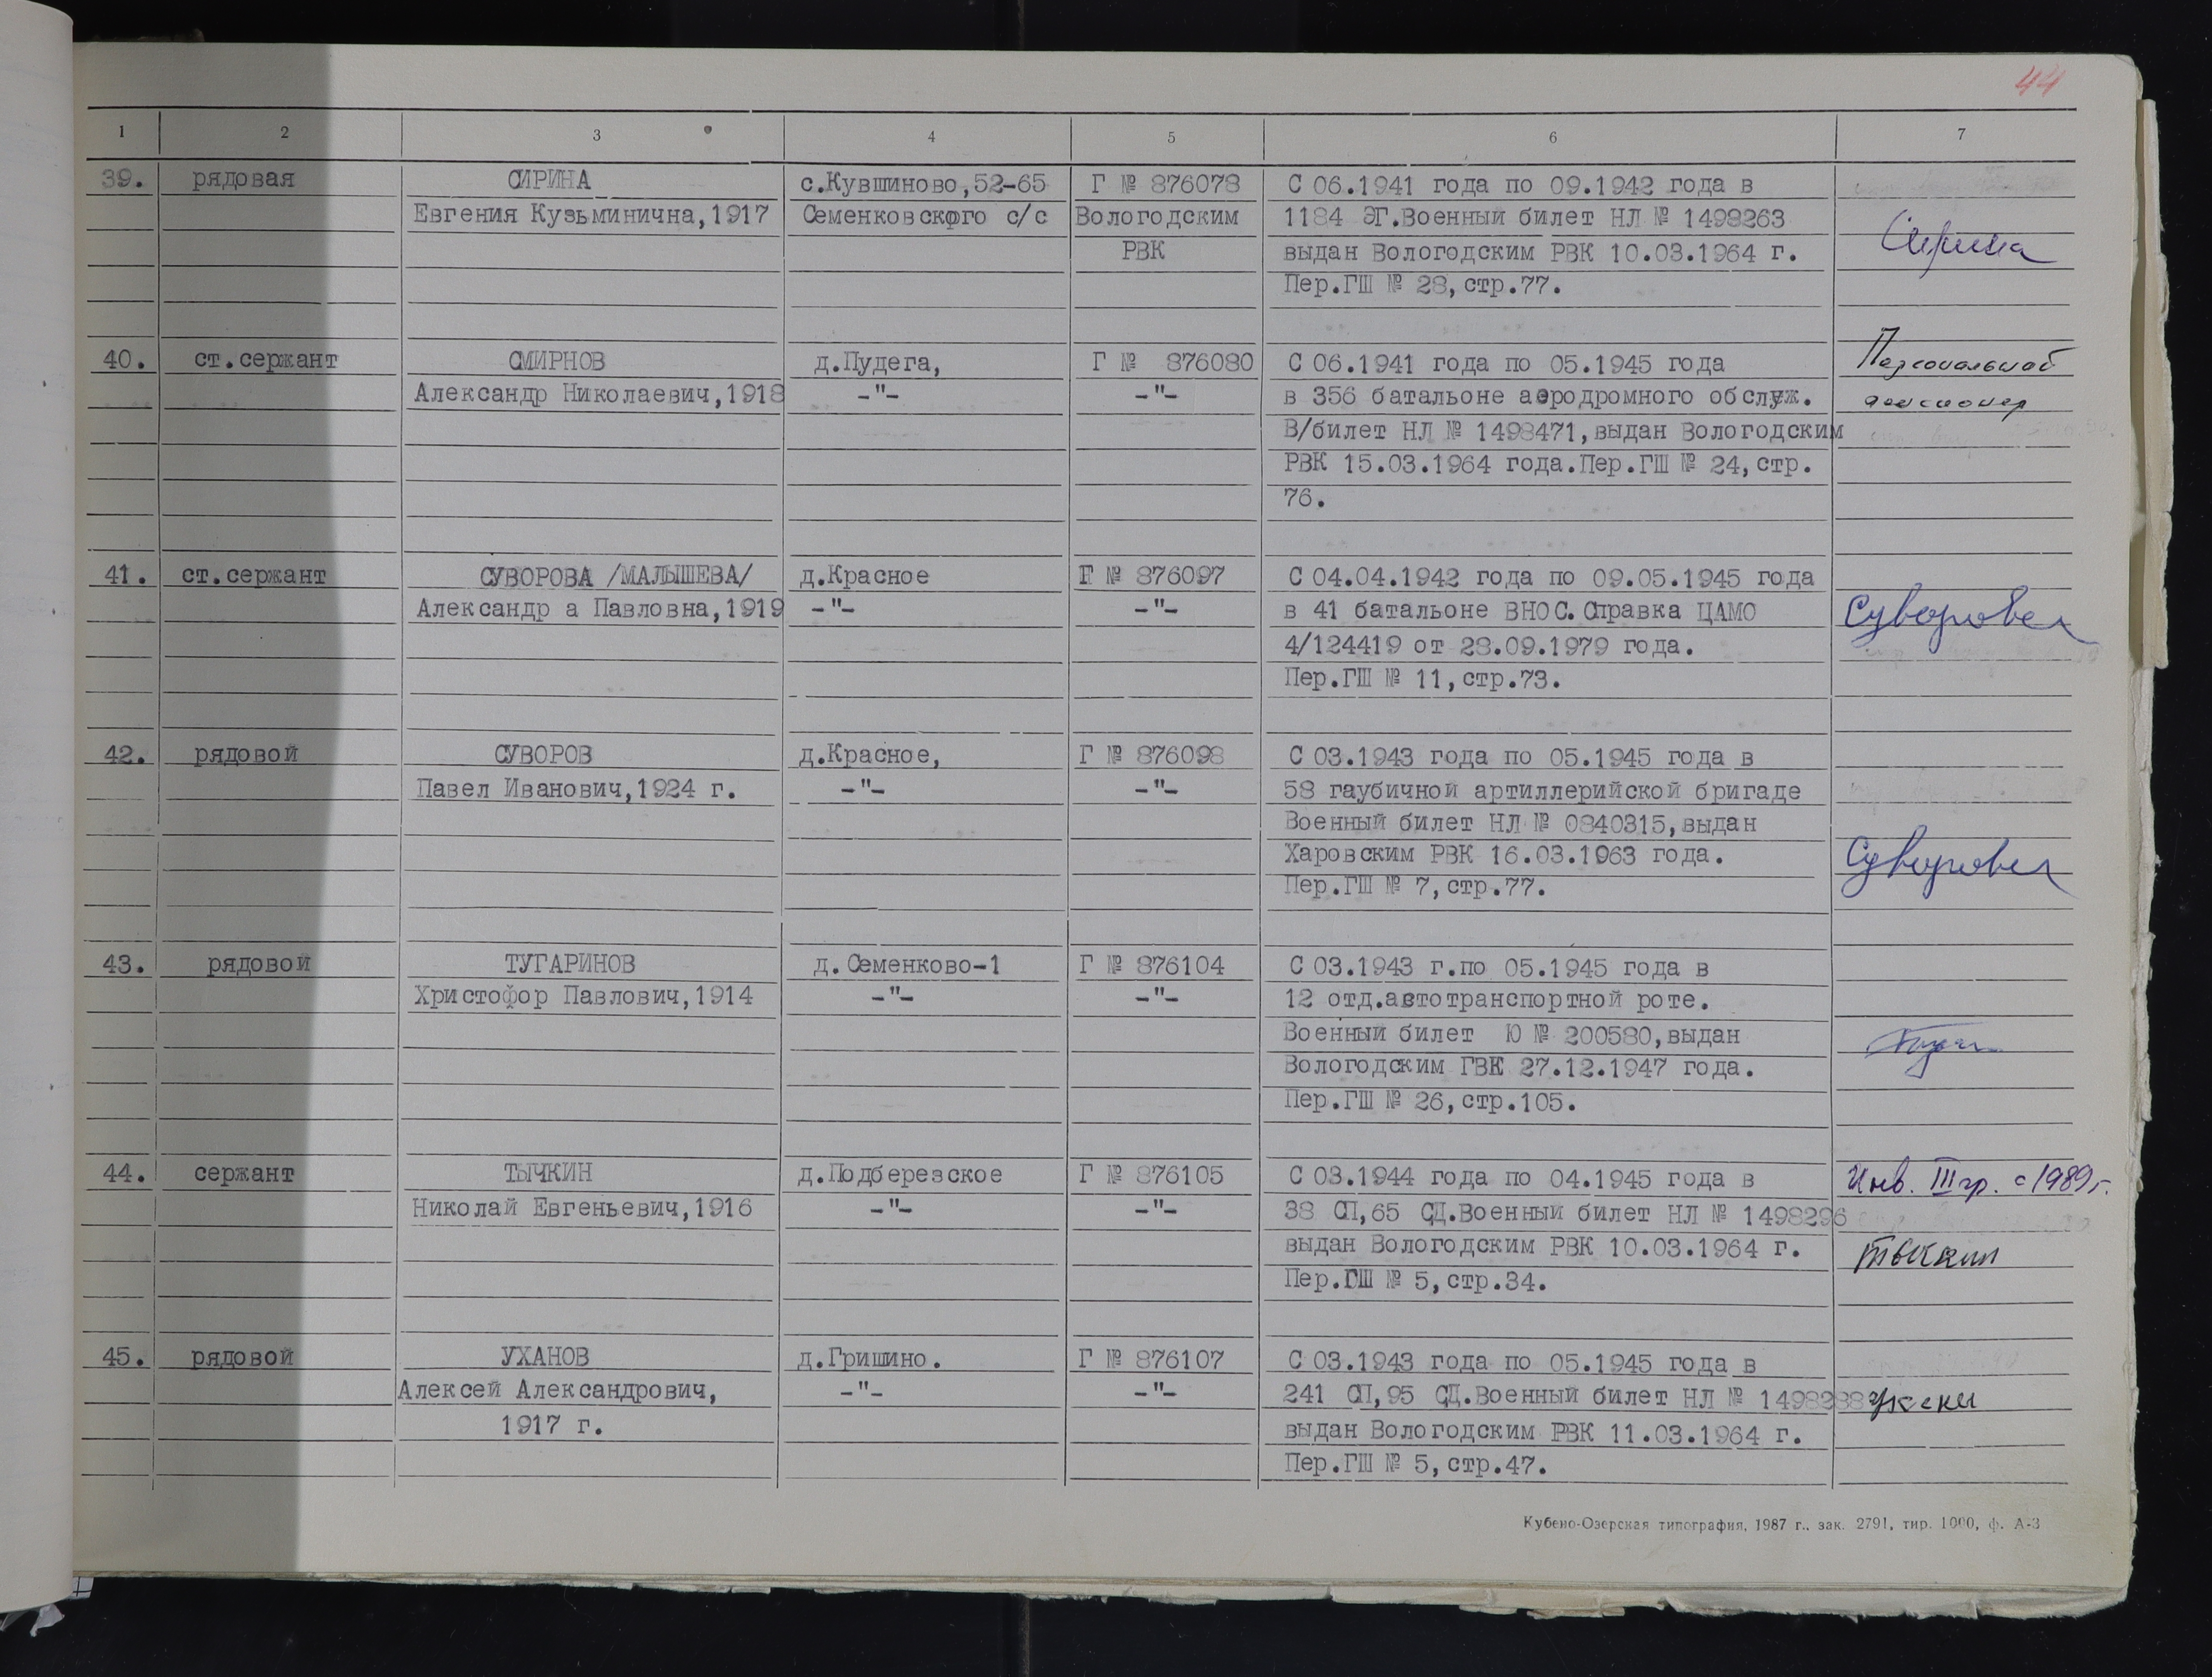 44
1 2 3 4 5 6 7
39. рядовая СИРИНА с.Кувшиново,52-65 Г № 876078 С 06.1941 года по 09.1942 года в
Евгения Кузьминична,1917 Семенковского с/с Вологодским 1184 ЭГ.Военный билет НЛ № 1498263
РВК выдан Вологодским РВК 10.03.1964 г. Сирина
Пер.ГШ № 28,стр.77.
40. ст.сержант СМИРНОВ д.Пудега, Г № 876080 С 06.1941 года по 05.1945 года Персональный
Александр Николаевич,1918 -"- -"- в 356 батальоне аэродромного обслуж. пенсионер
В/билет НЛ № 1498471,выдан Вологодским
РВК 15.03.1964 года.Пер.ГШ № 24,стр.
76.
41. ст.сержант СУВОРОВА /МАЛЫШЕВА/ д.Красное Г № 876097 С 04.04.1942 года по 09.05.1945 года
Александр а Павловна,1919 -"- -"- в 41 батальоне ВНОС.Справка ЦАМО Суворова
4/124419 от 28.09.1979 года.
Пер.ГШ № 11,стр.73.
42. рядовой СУВОРОВ д.Красное, Г № 876098 С 03.1943 года по 05.1945 года в
Павел Иванович,1924 г. -"- -"- 58 гаубичной артиллерийской бригаде
Военный билет НЛ № 0840315,выдан
Харовским РВК 16.03.1963 года. Суворова
Пер.ГШ № 7,стр.77.
43. рядовой ТУГАРИНОВ д. Семенково-1 Г № 876104 С 03.1943 г.по 05.1945 года в
Христофор Павлович,1914 -"- -"- 12 отд.автотранспортной роте.
Военный билет Ю № 200580,выдан
Вологодским ГВК 27.12.1947 года.
Пер.ГШ № 26,стр.105.
44. сержант ТЫЧКИН д.Подберезское Г № 876105 С 03.1944 года по 04.1945 года в Инв. III гр. с 1989 г.
Николай Евгеньевич,1916 -"- -"- 38 СП,65 СД.Военный билет НЛ № 1498296
выдан Вологодским РВК 10.03.1964 г. Тычкин
Пер.ГШ № 5,стр.34.
45. рядовой УХАНОВ д.Гришино. Г № 876107 С 03.1943 года по 05.1945 года в
Алексей Александрович, -"- -"- 241 СП,95 СД.Военный билет НЛ № 1498288
1917 г. выдан Вологодским РВК 11.03.1964 г.
Пер.ГШ № 5,стр.47.
Кубено-Озерская типография, 1987 г., зак. 2791, тир. 1000, ф. А-3